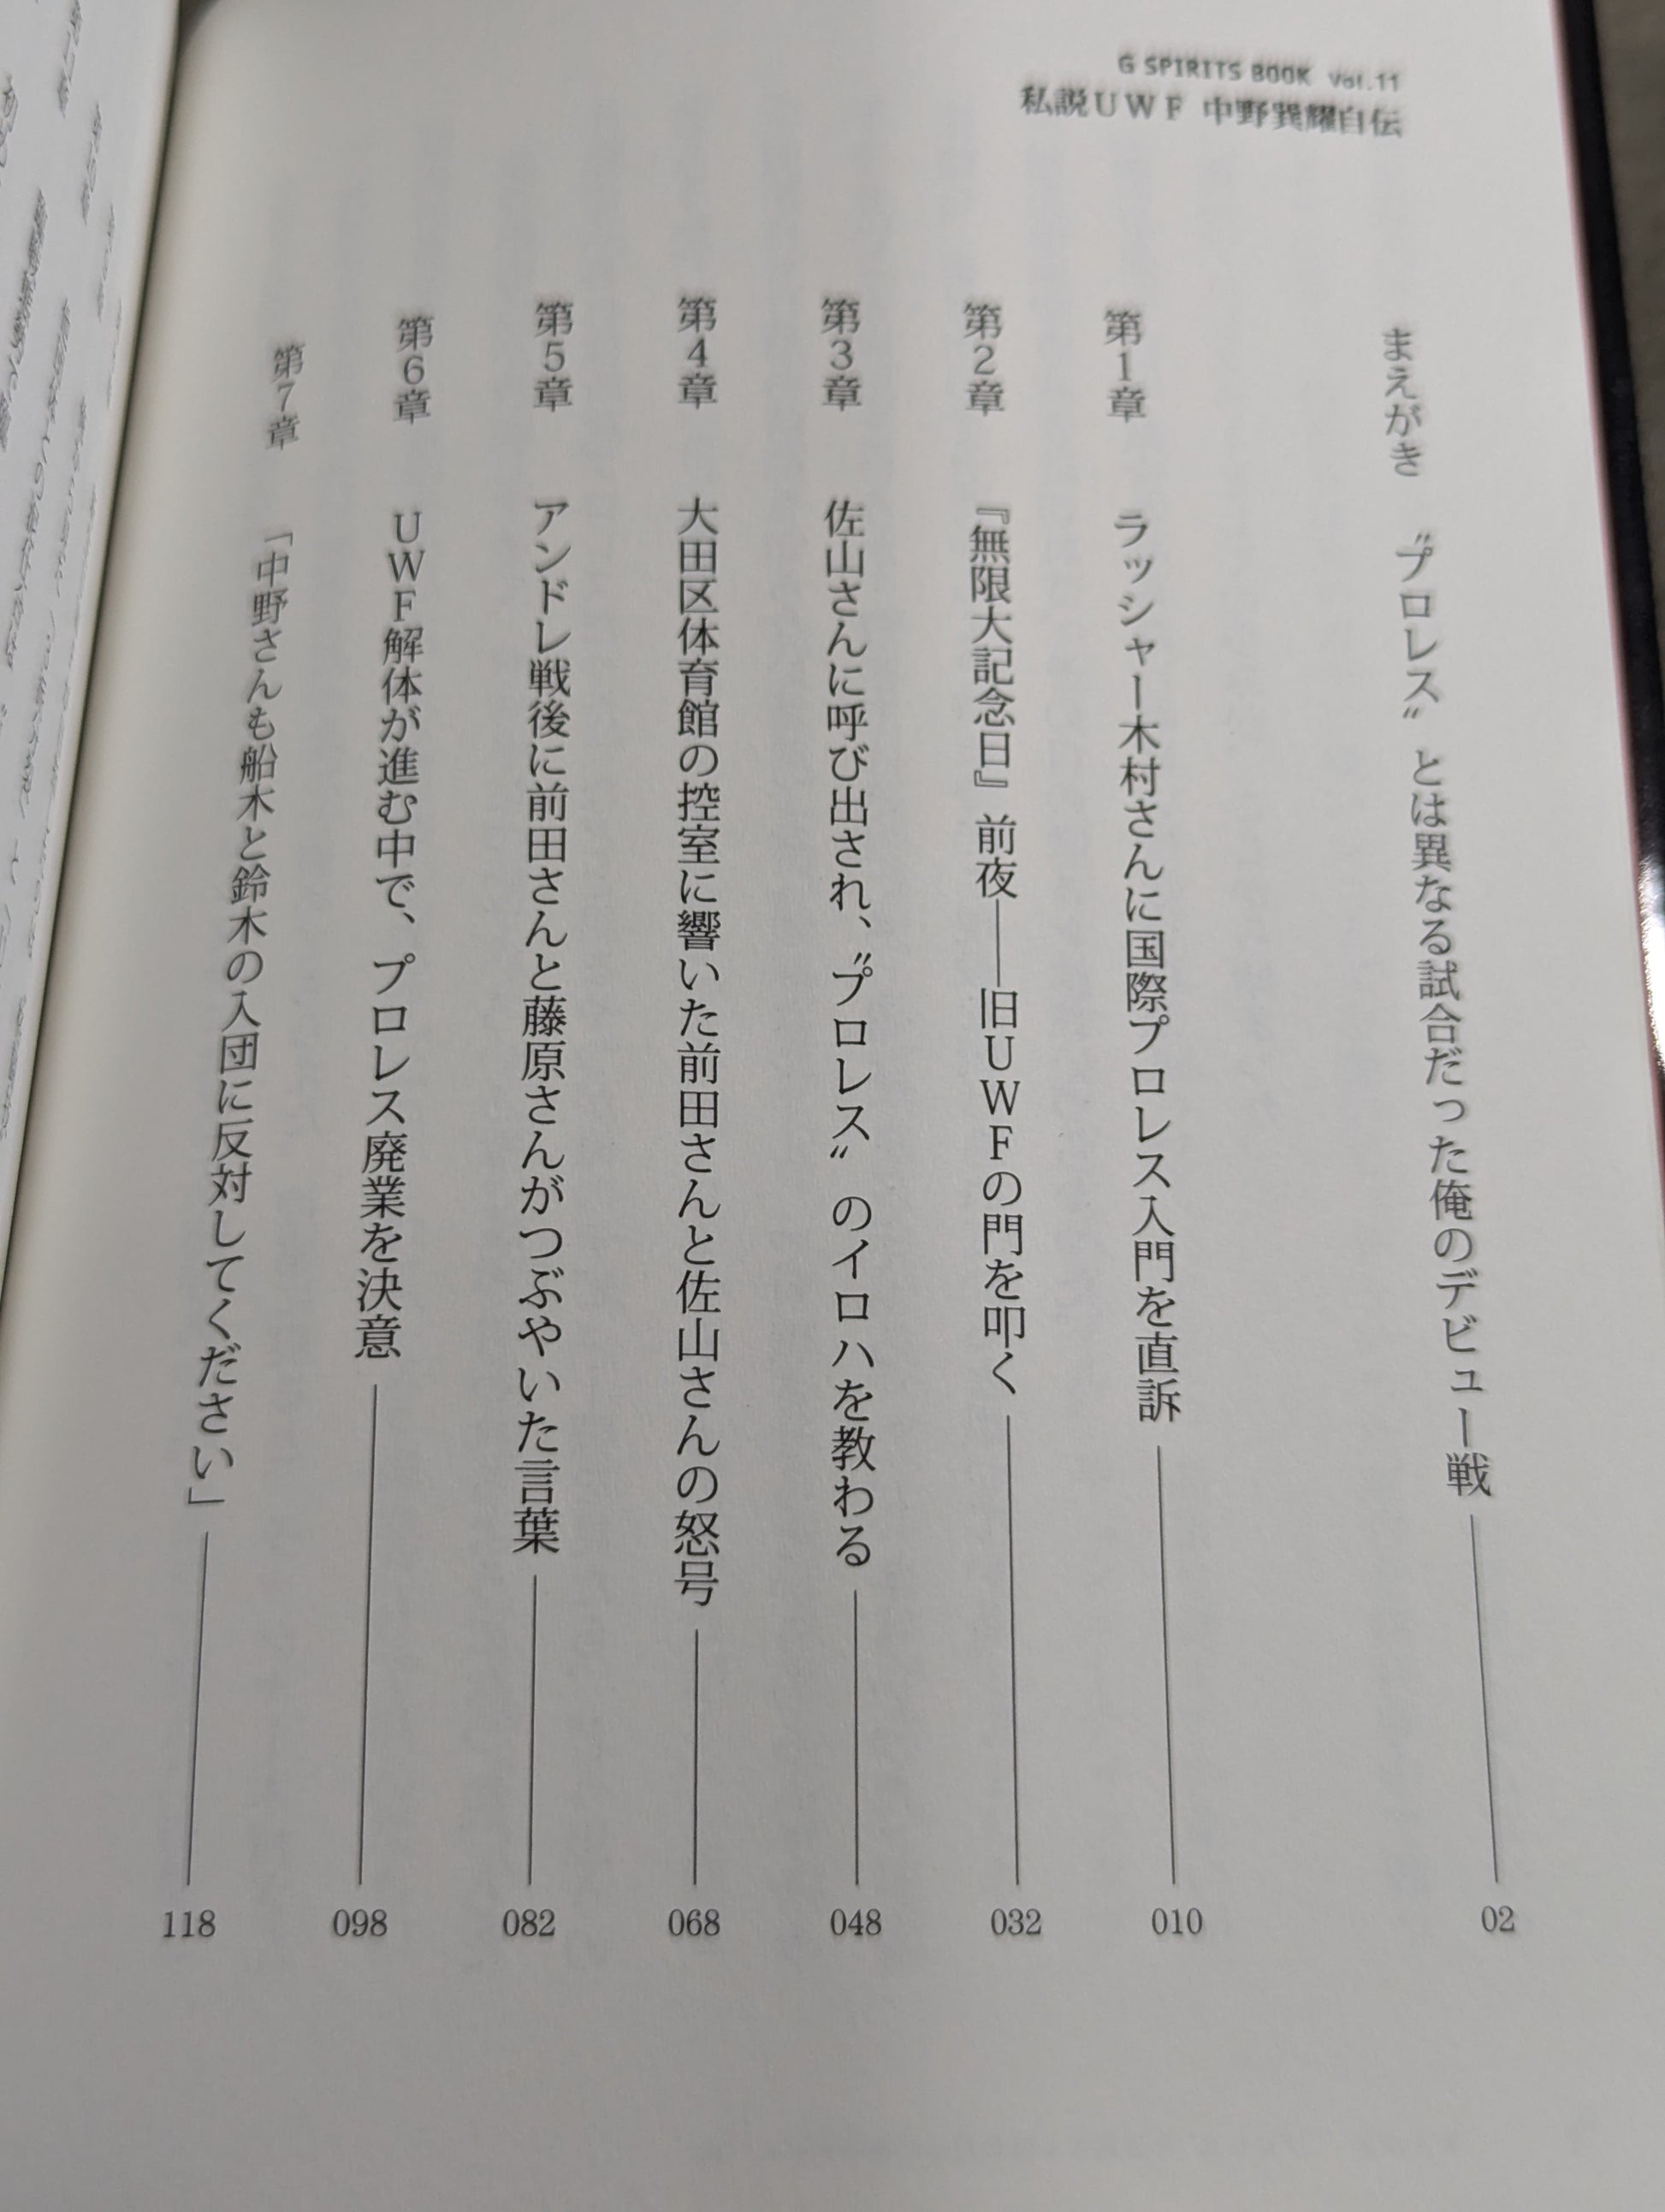 G SPIRITS BOOK Vol.11
私説UWF 中野巽耀自伝
まえがき 〝プロレス〟とは異なる試合だった俺のデビュー戦 02
第1章 ラッシャー木村さんに国際プロレス入門を直訴 010
第2章 『無限大記念日』前夜――旧UWFの門を叩く 032
第3章 佐山さんに呼び出され、〝プロレス〟のイロハを教わる 048
第4章 大田区体育館の控室に響いた前田さんと佐山さんの怒号 068
第5章 アンドレ戦後に前田さんと藤原さんがつぶやいた言葉 082
第6章 UWF解体が進む中で、プロレス廃業を決意 098
第7章 「中野さんも船木と鈴木の入団に反対してください」 118